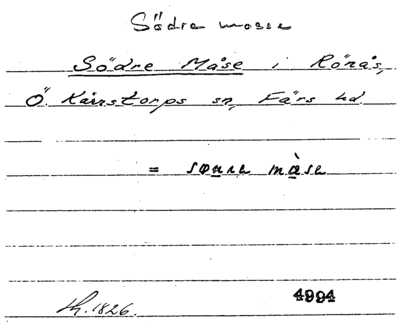 Södre mosse
Södre Måse i Rönås,
Ö. Kärrstorps sn, Färs hd
= sønre måse
1826. 4994